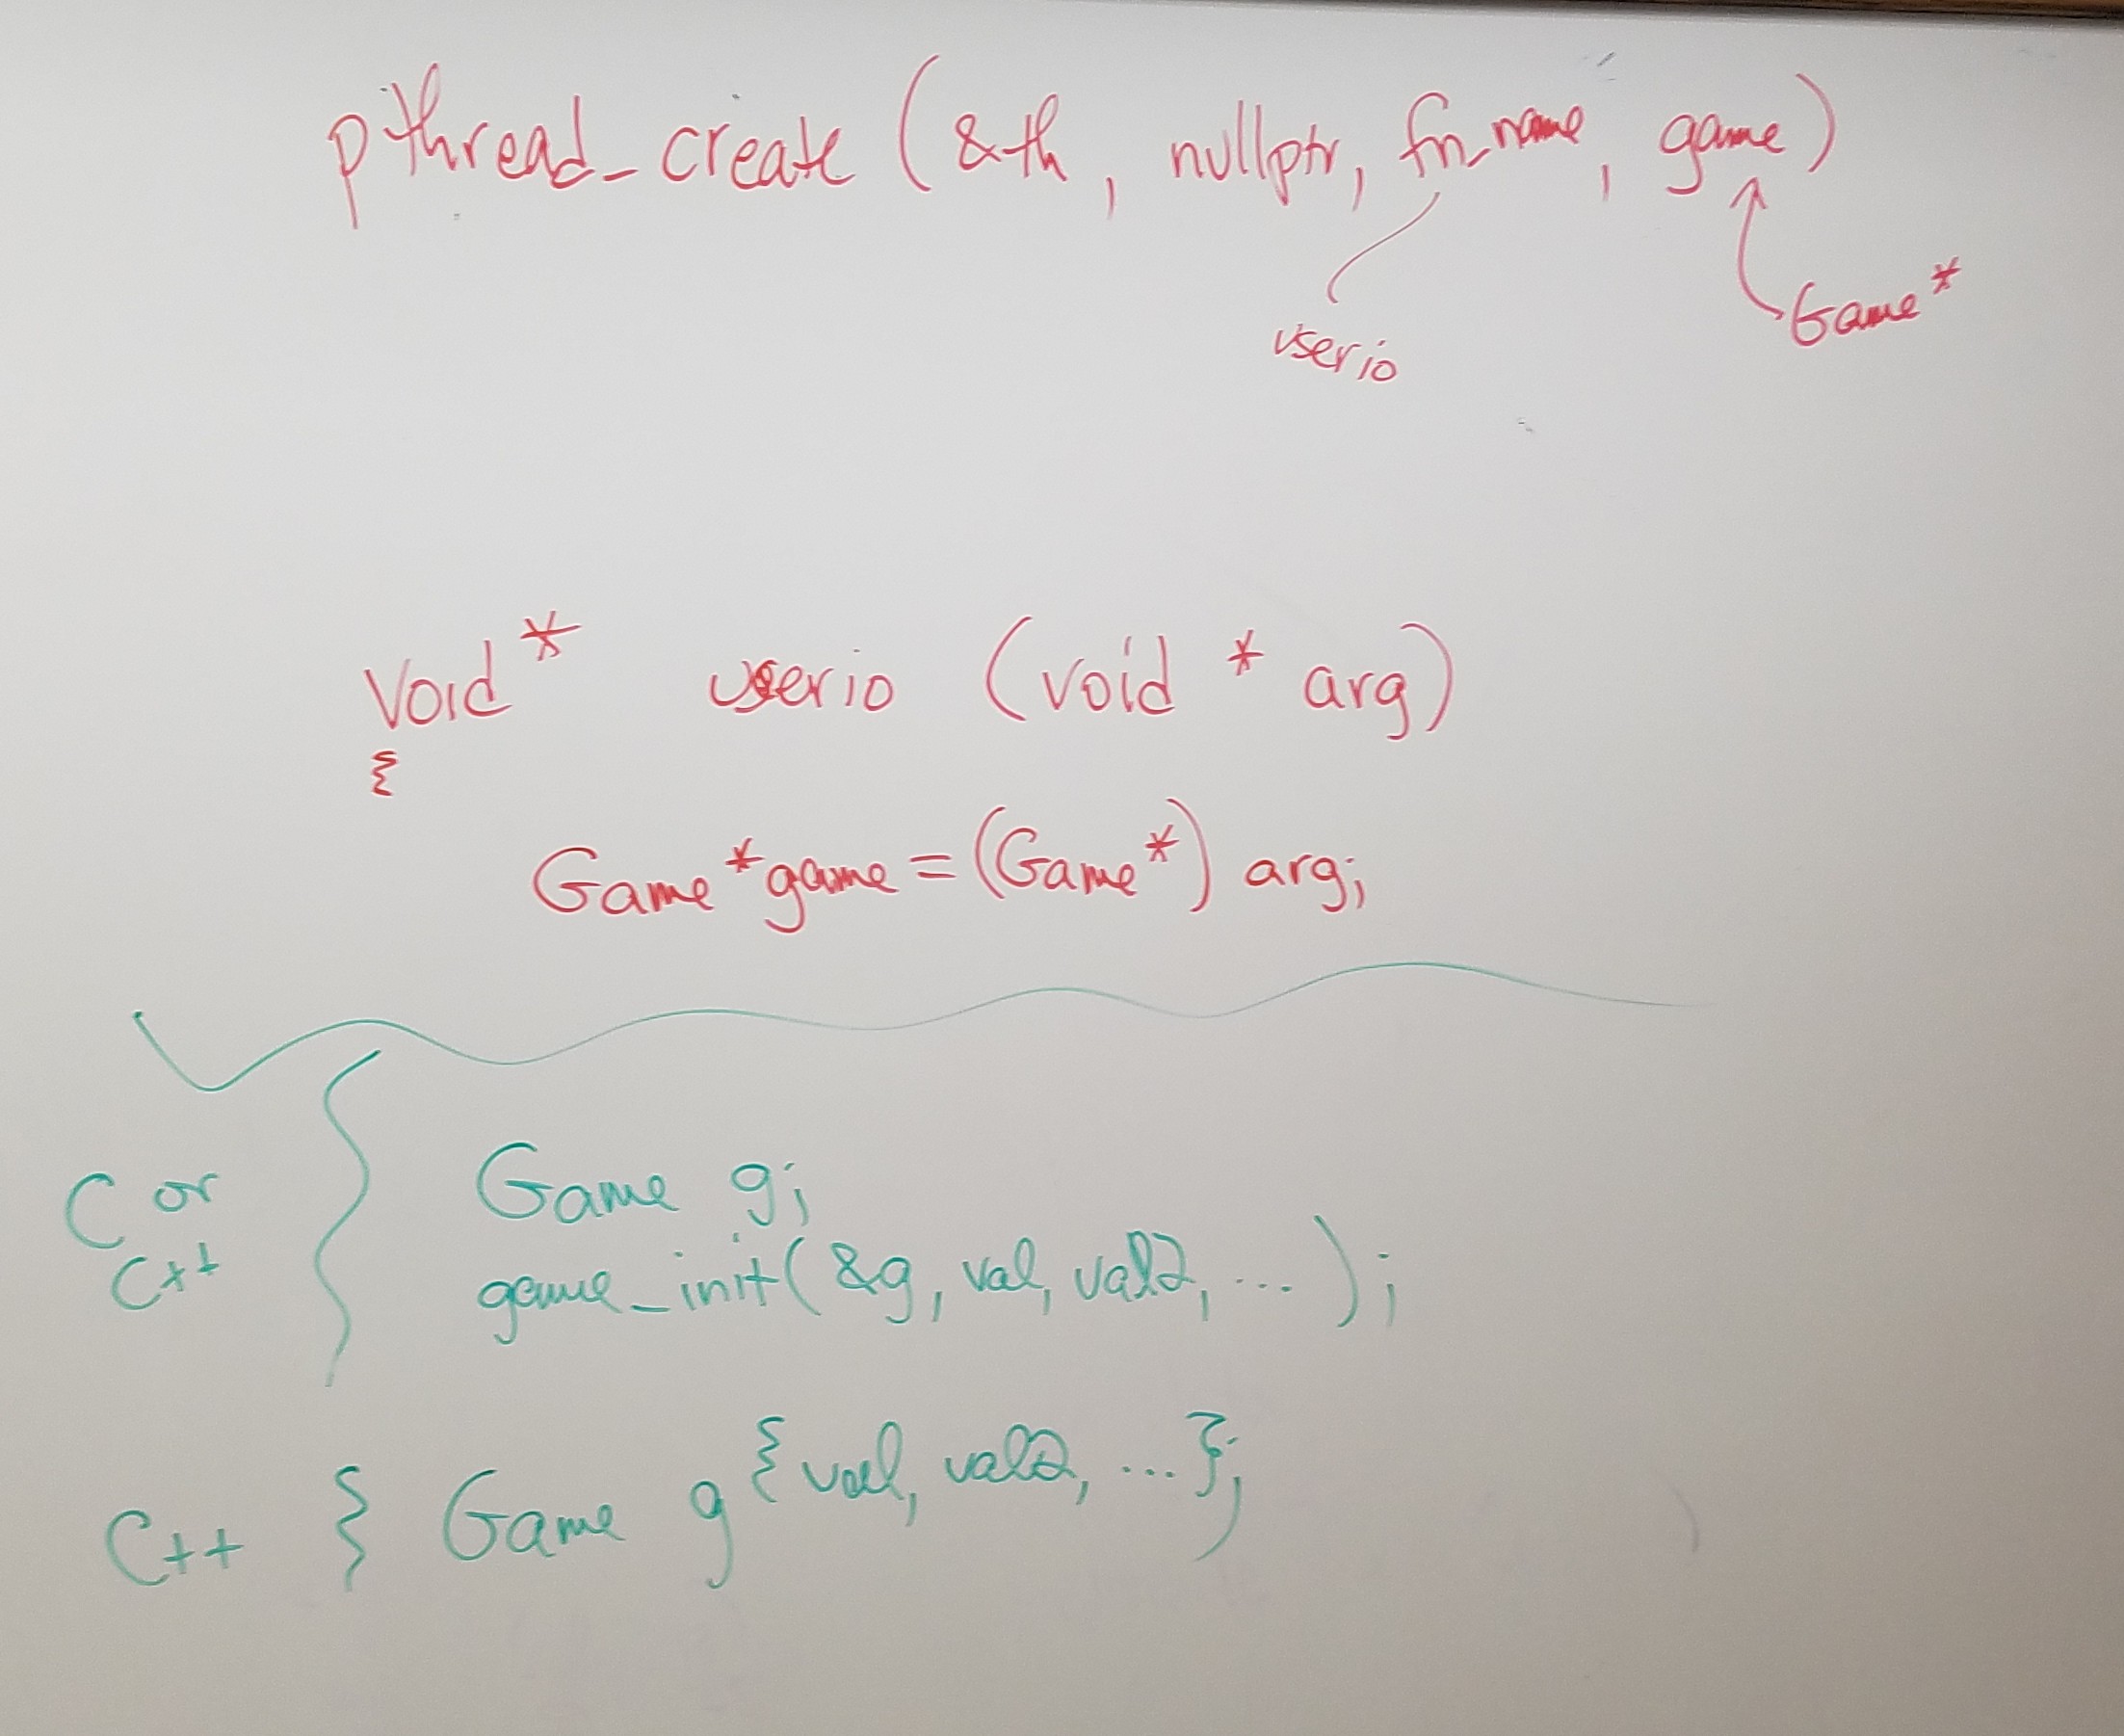 pthread_create (&th, nullptr, fn_name, game)
userio
Game*
Void* userio (void * arg)
{
Game *game = (Game*) arg;
C or
C++
Game g;
game_init(&g, val, val2, ...);
C++ { Game g {val, val2, ...};